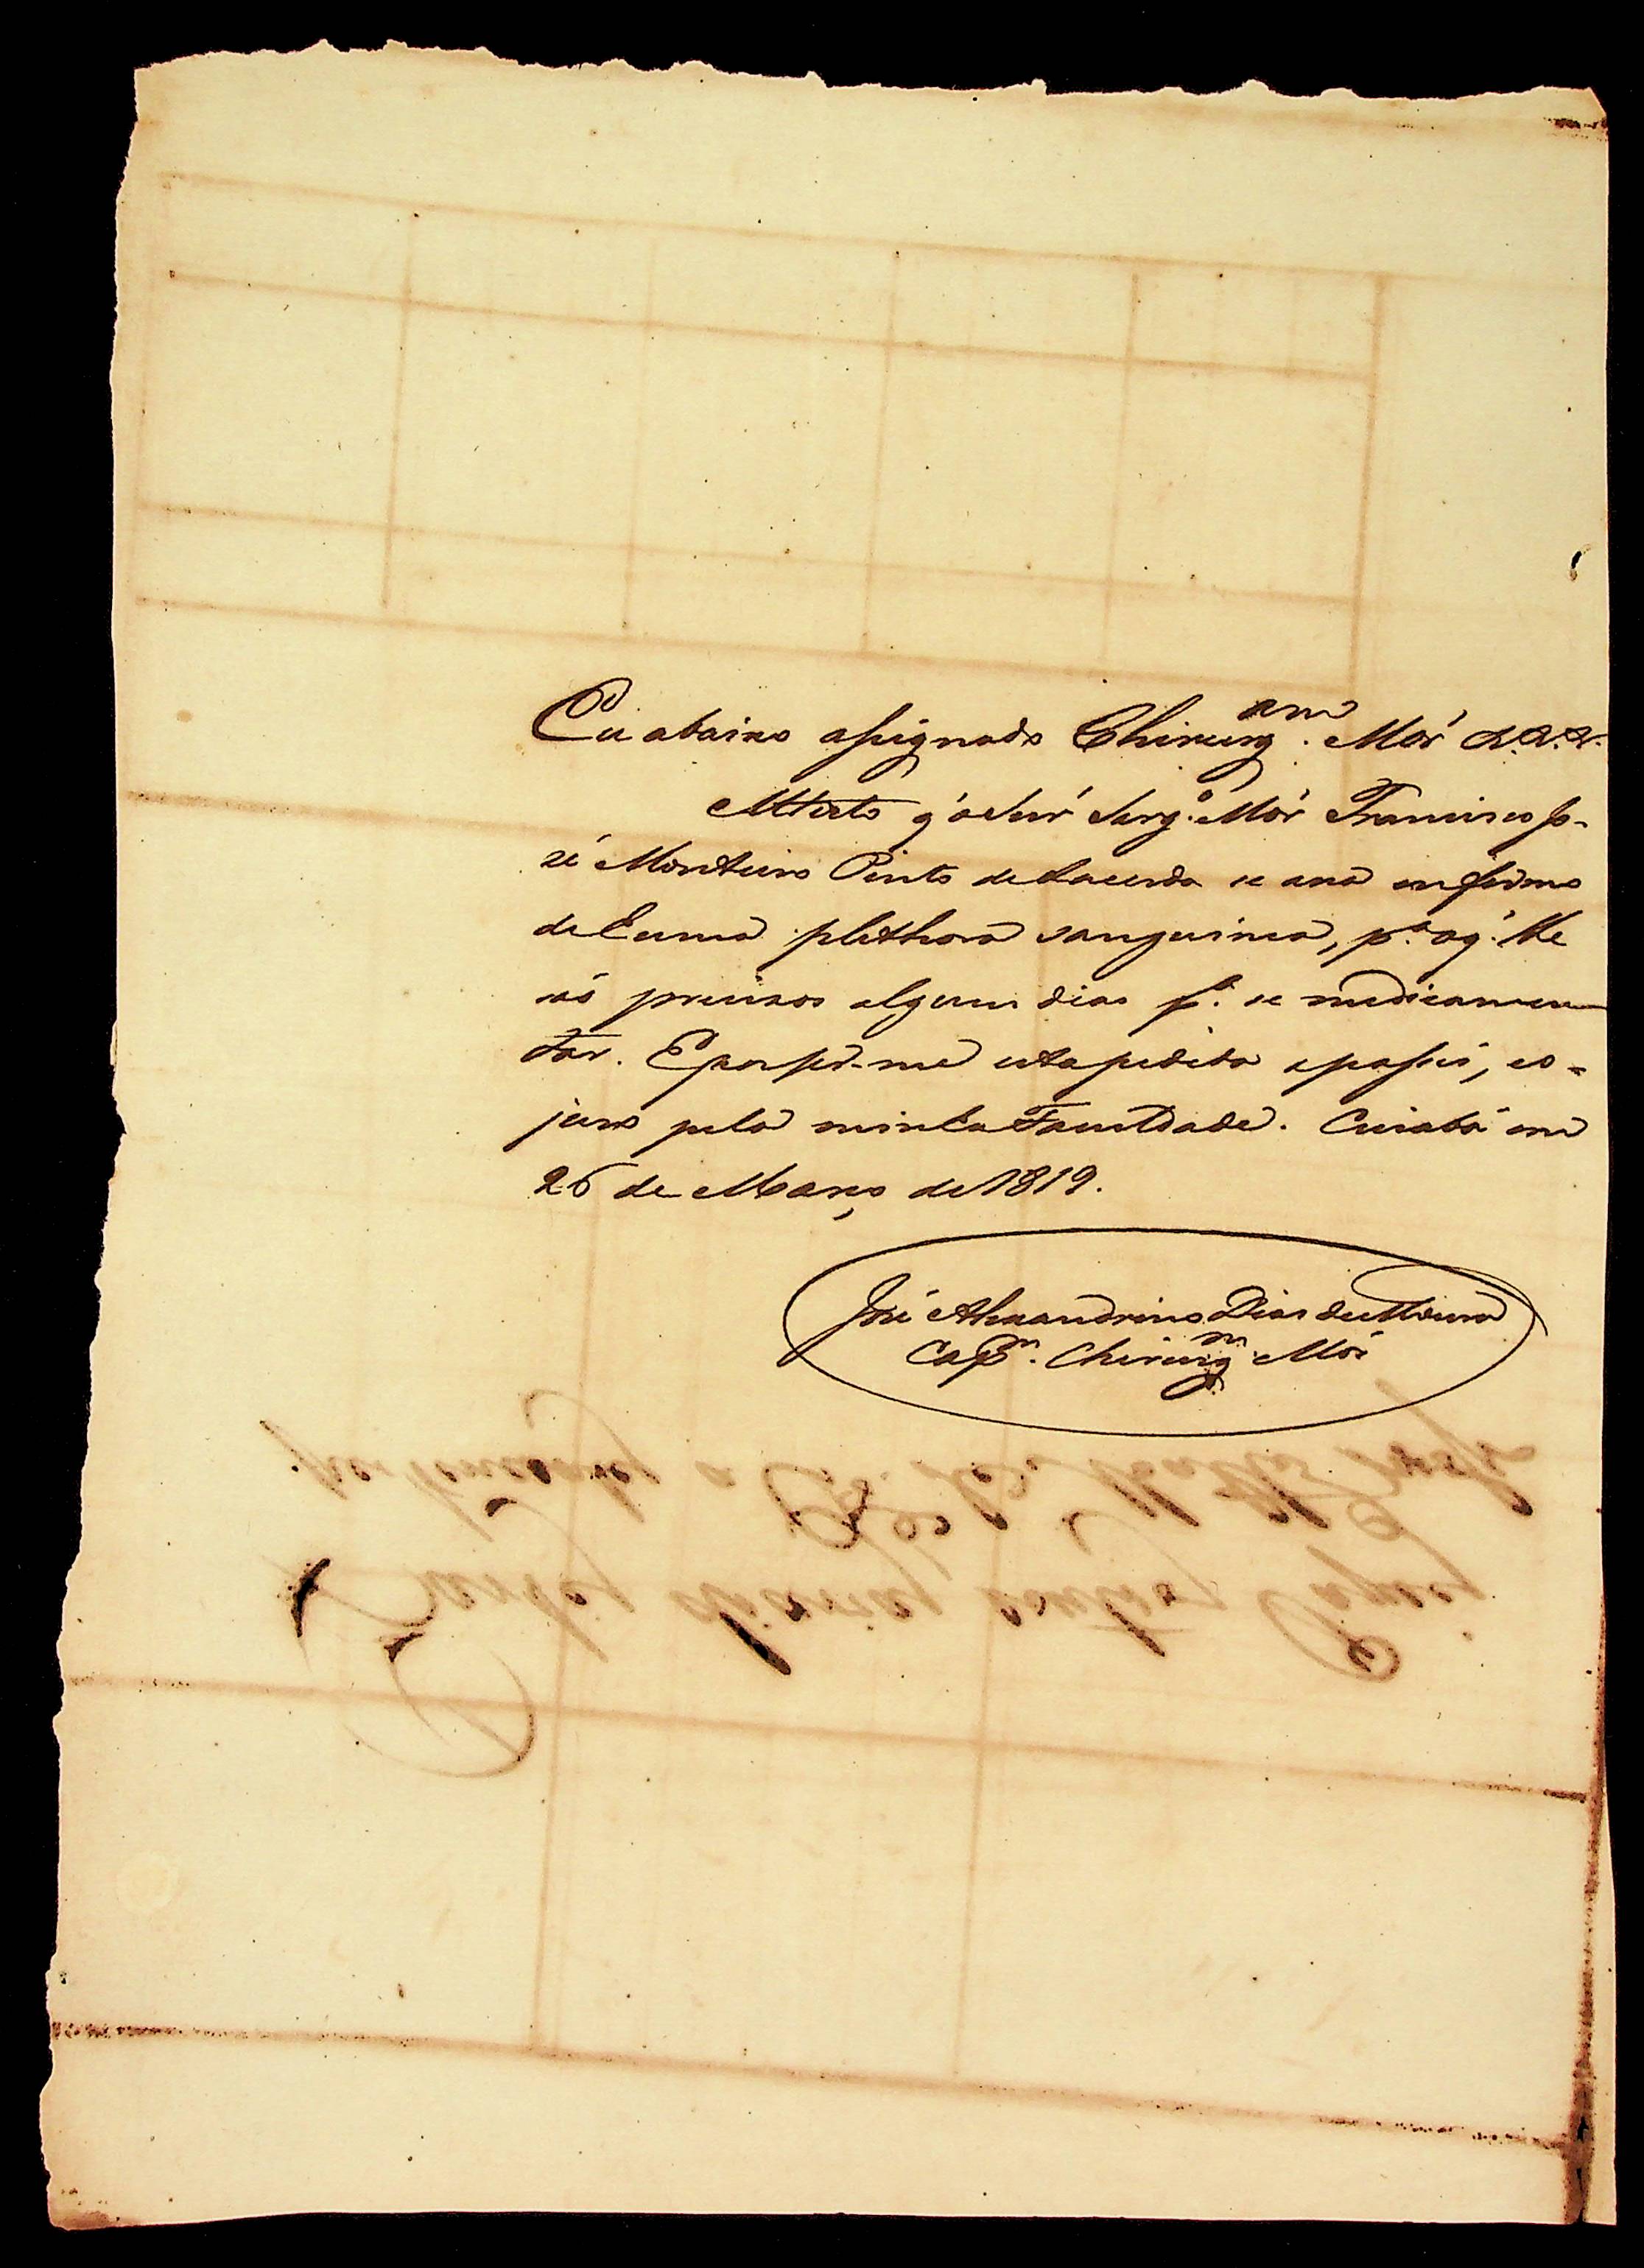 Eu abaixo assignado Chirurgam. Mór &.&.&.
Attésto q' o Snr' Sarg.to Mór Francisco Jo-
zé Monteiro Pinto de Lacerda se axa enfermo
de huma plethora sanguinea, p.a o q' lhe
são precizos alguns dias p.a se medicamen
tar. E por ser-me esta pedida a passei, e o-
juro pela minha Faculdade. Cuiabá em
26 de Março de 1819.
José Alexandrino Dias de Moura
Cap.m Chirurg.m Mór